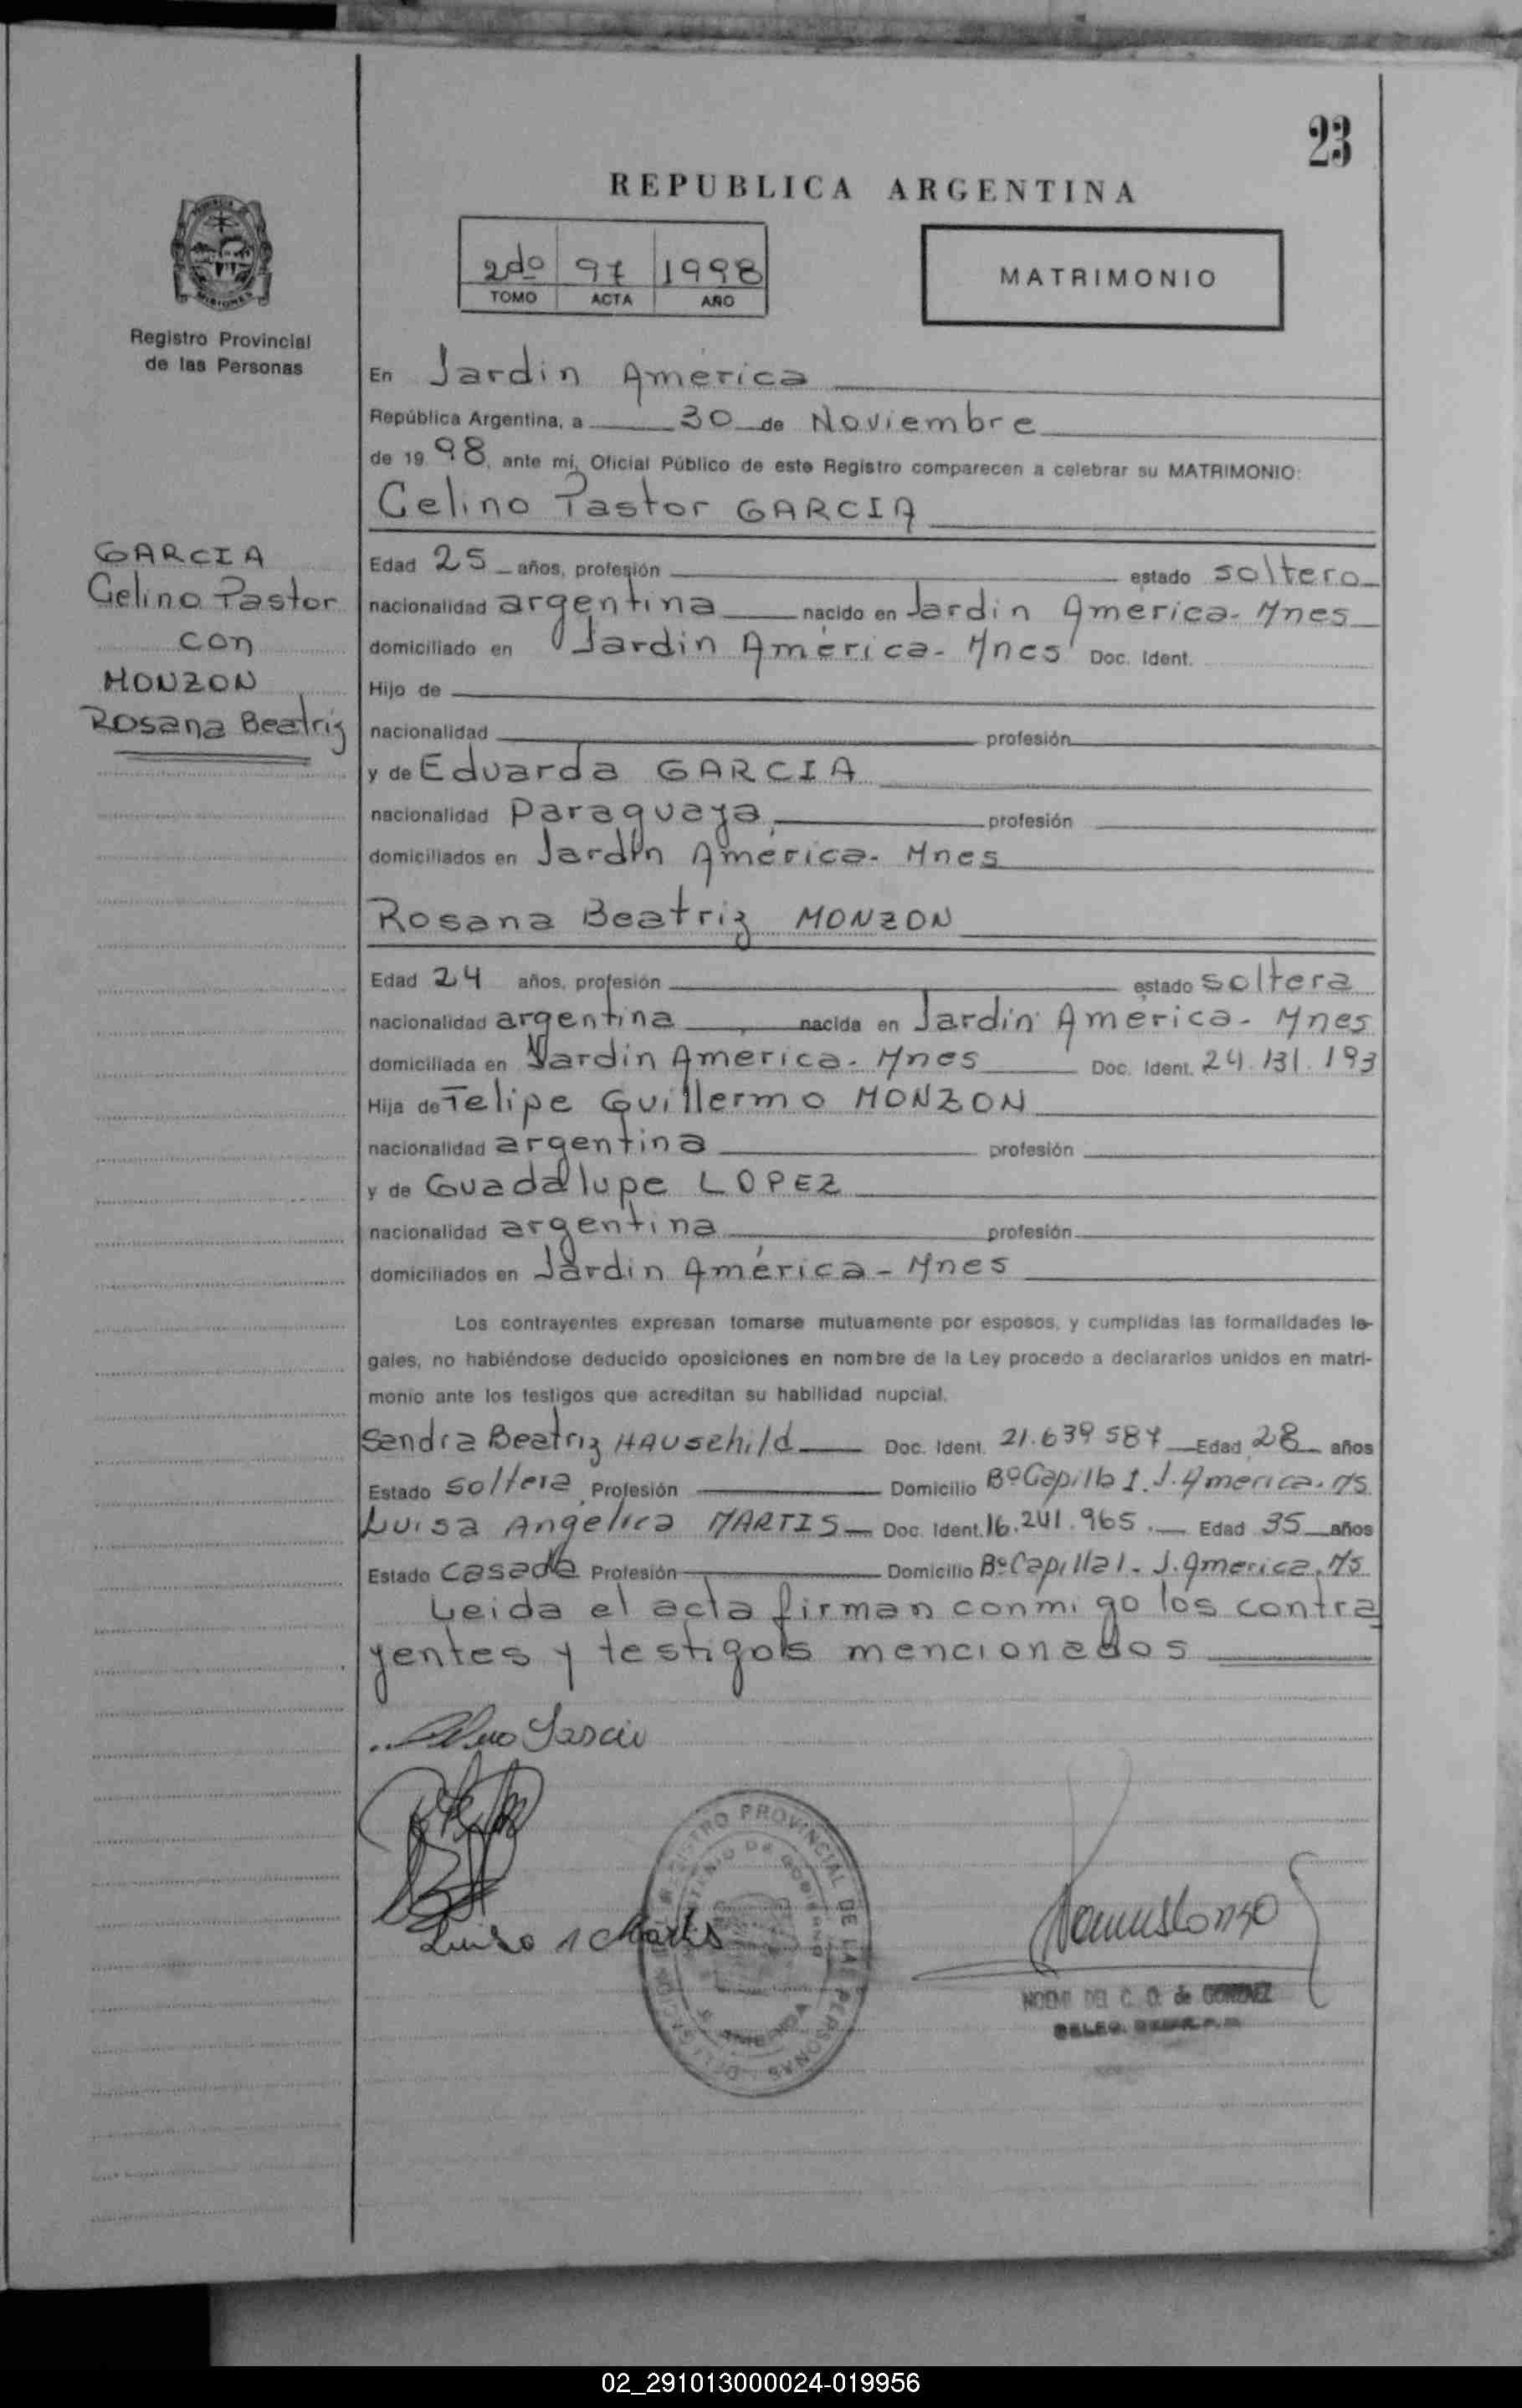 23
REPUBLICA ARGENTINA
2do 97 1998
TOMO ACTA AÑO
MATRIMONIO
Registro Provincial
de las Personas
En Jardín América
República Argentina, a 30 de Noviembre
de 1998, ante mí, Oficial Público de este Registro comparecen a celebrar su MATRIMONIO:
Celino Pastor GARCIA
GARCIA
Celino Pastor
con
MONZON
Rosana Beatriz
Edad 25 años, profesión estado soltero
nacionalidad argentina nacido en Jardín America- Mnes
domiciliado en Jardín América- Mnes Doc. Ident.
Hijo de
nacionalidad profesión
y de Eduarda GARCIA
nacionalidad Paraguaya profesión
domiciliados en Jardín América- Mnes
Rosana Beatriz MONZON
Edad 24 años, profesión estado soltera
nacionalidad argentina nacida en Jardín America- Mnes
domiciliada en Jardín America- Mnes Doc. Ident. 24.131.193
Hija de Felipe Guillermo MONZON
nacionalidad argentina profesión
y de Guadalupe LOPEZ
nacionalidad argentina profesión
domiciliados en Jardín América- Mnes
Los contrayentes expresan tomarse mutuamente por esposos, y cumplidas las formalidades le-
gales, no habiéndose deducido oposiciones en nombre de la Ley procedo a declararlos unidos en matri-
monio ante los testigos que acreditan su habilidad nupcial.
Sandra Beatriz HAUSCHILD Doc. Ident. 21.639587 Edad 28 años
Estado soltera Profesión Domicilio Bº Capilla I. J. America. Ms
Luisa Angelica MARTIS Doc. Ident. 16.241.965 Edad 35 años
Estado casada Profesión Domicilio Bº Capilla I - J. America. Ms
Leida el acta firman conmigo los contra
yentes y testigos mencionados
Celino Garcia
Luisa A Martis
REGISTRO PROVINCIAL DE LAS PERSONAS
MINISTERIO DE GOBIERNO
NOEMI DEL C. O. de
02_291013000024-019956